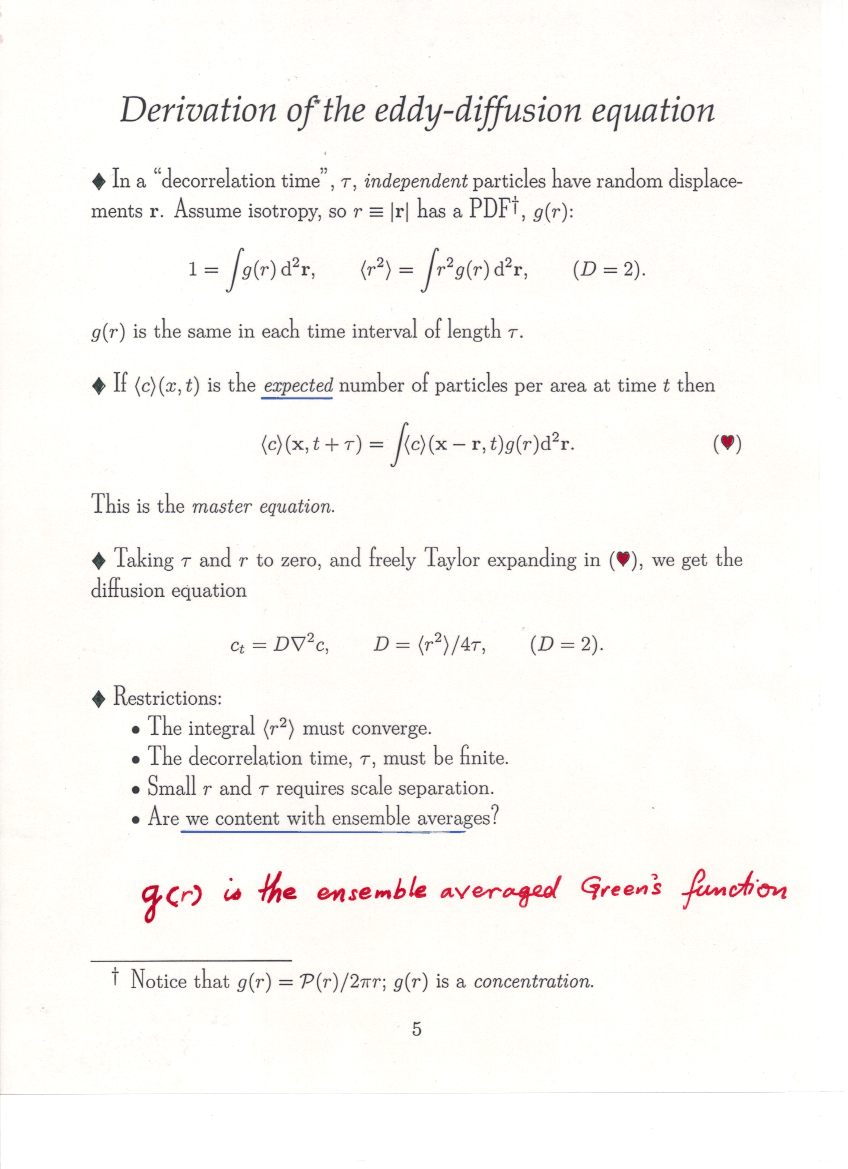 Derivation of the eddy-diffusion equation
♦ In a “decorrelation time”, τ, independent particles have random displace-
ments r. Assume isotropy, so r ≡ |r| has a PDF†, g(r):
1 = ∫g(r) d²r, ⟨r²⟩ = ∫r²g(r) d²r, (D = 2).
g(r) is the same in each time interval of length τ.
♦ If ⟨c⟩(x, t) is the expected number of particles per area at time t then
⟨c⟩(x, t + τ) = ∫⟨c⟩(x − r, t)g(r)d²r. (♥)
This is the master equation.
♦ Taking τ and r to zero, and freely Taylor expanding in (♥), we get the
diffusion equation
cₜ = D∇²c, D = ⟨r²⟩/4τ, (D = 2).
♦ Restrictions:
• The integral ⟨r²⟩ must converge.
• The decorrelation time, τ, must be finite.
• Small r and τ requires scale separation.
• Are we content with ensemble averages?
g(r) is the ensemble averaged Green's function
† Notice that g(r) = 𝒫(r)/2πr; g(r) is a concentration.
5